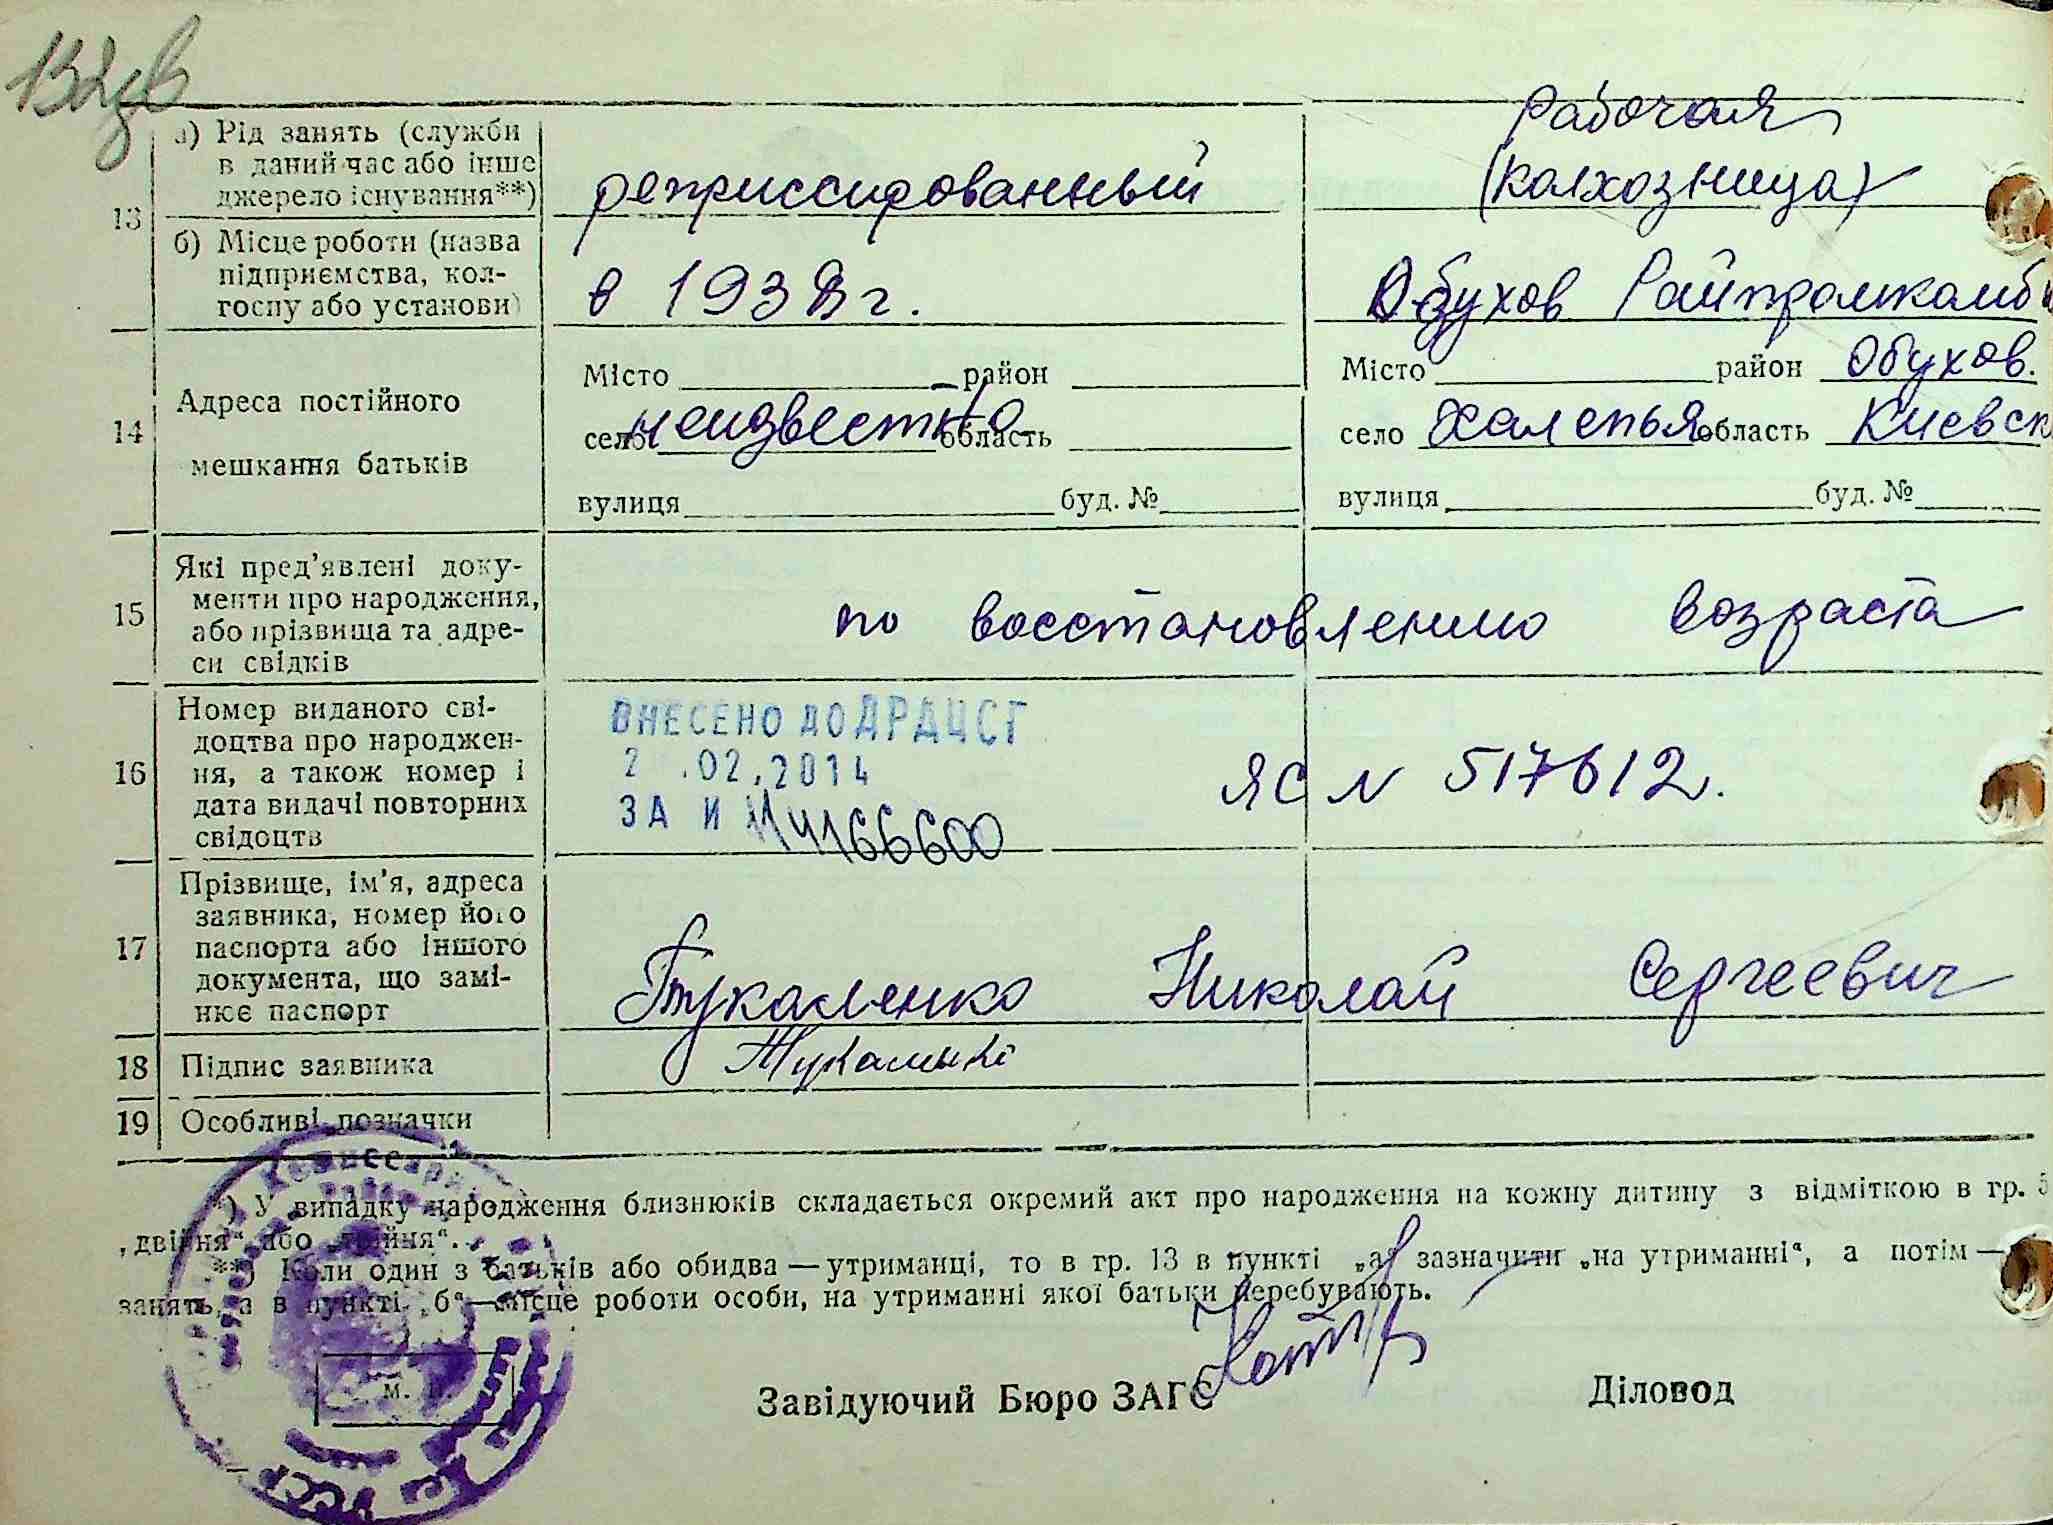 13
а) Рід занять (служби
в даний час або інше
джерело існування**)
репрессированный
Рабочая
(колхозница)
б) Місце роботи (назва
підприємства, кол-
госпу або установи)
в 1938 г.
Обухов Райпромкомб
14
Адреса постійного
мешкання батьків
Місто район
село неизвестно область
вулиця буд. №
Місто район Обухов.
село Халепья область Киевск
вулиця буд. №
15
Які пред’явлені доку-
менти про народження,
або прізвища та адре-
си свідків
по восстановлению возраста
16
Номер виданого сві-
доцтва про народжен-
ня, а також номер і
дата видачі повторних
свідоцтв
ВНЕСЕНО ДО ДРАЦСГ
2 .02.2014
ЗА №
ЯС N 517612.
17
Прізвище, ім’я, адреса
заявника, номер його
паспорта або іншого
документа, що замі-
нює паспорт
Тукаленко Николай Сергеевич
18
Підпис заявника
19
Особливі позначки
*) У випадку народження близнюків складається окремий акт про народження на кожну дитину з відміткою в гр. 5
„двійня“ або „трійня“.
**) Коли один з батьків або обидва — утриманці, то в гр. 13 в пункті „а“ зазначити „на утриманні“, а потім —
занять, а в пункті „б“ — місце роботи особи, на утриманні якої батьки перебувають.
М. П.
Завідуючий Бюро ЗАГС
Діловод
УССР